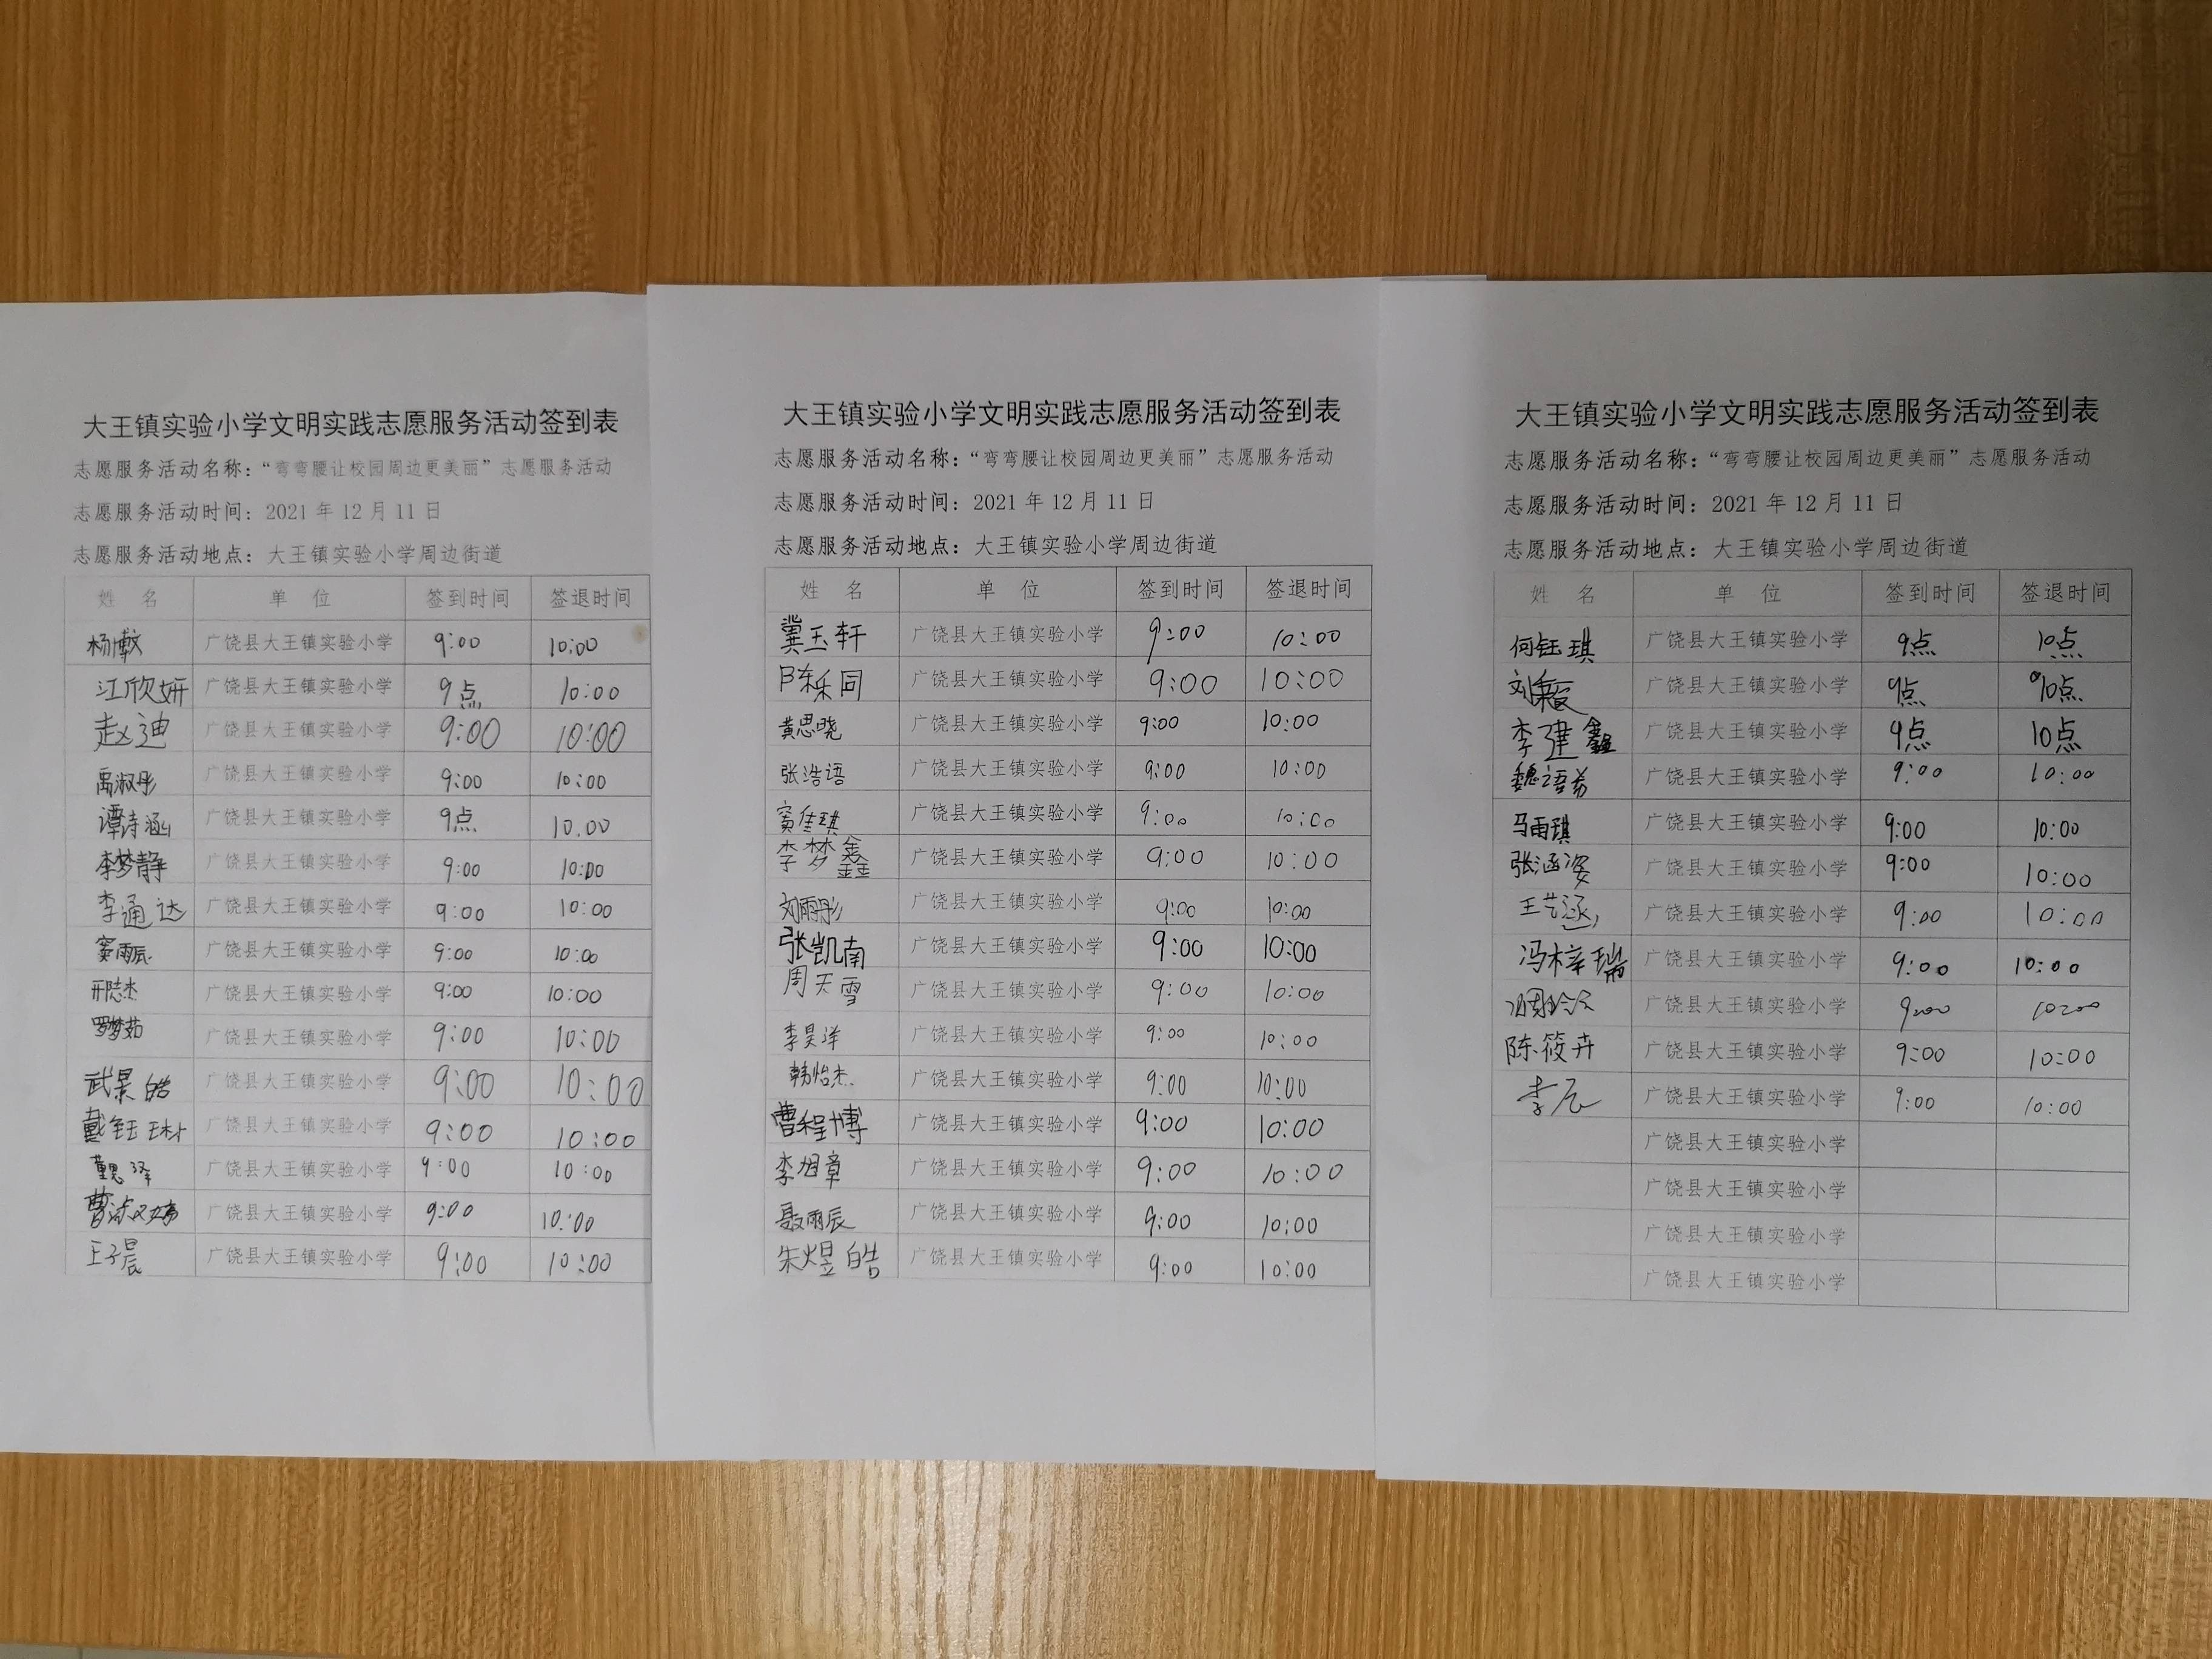 大王镇实验小学文明实践志愿服务活动签到表
志愿服务活动名称：“弯弯腰让校园周边更美丽”志愿服务活动
志愿服务活动时间：2021 年 12 月 11 日
志愿服务活动地点：大王镇实验小学周边街道
姓 名 单 位 签到时间 签退时间
杨博敏 广饶县大王镇实验小学 9:00 10:00
江欣妍 广饶县大王镇实验小学 9点 10:00
赵迪 广饶县大王镇实验小学 9:00 10:00
禹淑彤 广饶县大王镇实验小学 9:00 10:00
谭诗涵 广饶县大王镇实验小学 9点 10.00
李梦静 广饶县大王镇实验小学 9:00 10:00
李通达 广饶县大王镇实验小学 9:00 10:00
窦雨辰 广饶县大王镇实验小学 9:00 10:00
广饶县大王镇实验小学 9:00 10:00
罗梦茹 广饶县大王镇实验小学 9:00 10:00
武景皓 广饶县大王镇实验小学 9:00 10:00
戴钰琳 广饶县大王镇实验小学 9:00 10:00
广饶县大王镇实验小学 9:00 10:00
广饶县大王镇实验小学 9:00 10:00
王子晨 广饶县大王镇实验小学 9:00 10:00
大王镇实验小学文明实践志愿服务活动签到表
志愿服务活动名称：“弯弯腰让校园周边更美丽”志愿服务活动
志愿服务活动时间：2021 年 12 月 11 日
志愿服务活动地点：大王镇实验小学周边街道
姓 名 单 位 签到时间 签退时间
冀玉轩 广饶县大王镇实验小学 9:00 10:00
陈乐同 广饶县大王镇实验小学 9:00 10:00
黄思晓 广饶县大王镇实验小学 9:00 10:00
张浩语 广饶县大王镇实验小学 9:00 10:00
窦佳琪 广饶县大王镇实验小学 9:00 10:00
李梦鑫 广饶县大王镇实验小学 9:00 10:00
刘雨彤 广饶县大王镇实验小学 9:00 10:00
张凯南 广饶县大王镇实验小学 9:00 10:00
周天雪 广饶县大王镇实验小学 9:00 10:00
李昊洋 广饶县大王镇实验小学 9:00 10:00
韩怡杰 广饶县大王镇实验小学 9:00 10:00
曹程博 广饶县大王镇实验小学 9:00 10:00
李旭章 广饶县大王镇实验小学 9:00 10:00
聂雨辰 广饶县大王镇实验小学 9:00 10:00
朱煜皓 广饶县大王镇实验小学 9:00 10:00
大王镇实验小学文明实践志愿服务活动签到表
志愿服务活动名称：“弯弯腰让校园周边更美丽”志愿服务活动
志愿服务活动时间：2021 年 12 月 11 日
志愿服务活动地点：大王镇实验小学周边街道
姓 名 单 位 签到时间 签退时间
何钰琪 广饶县大王镇实验小学 9点 10点
广饶县大王镇实验小学 9点 10点
李建鑫 广饶县大王镇实验小学 9点 10点
魏语芳 广饶县大王镇实验小学 9:00 10:00
马雨琪 广饶县大王镇实验小学 9:00 10:00
张涵姿 广饶县大王镇实验小学 9:00 10:00
王艺涵 广饶县大王镇实验小学 9:00 10:00
冯梓瑞 广饶县大王镇实验小学 9:00 10:00
广饶县大王镇实验小学 9:00 10:00
陈筱卉 广饶县大王镇实验小学 9:00 10:00
李辰 广饶县大王镇实验小学 9:00 10:00
广饶县大王镇实验小学
广饶县大王镇实验小学
广饶县大王镇实验小学
广饶县大王镇实验小学